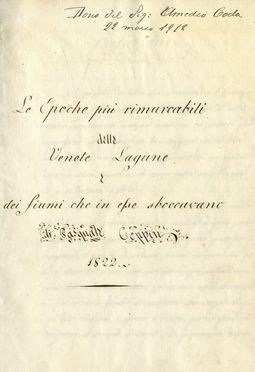 Dono del Sig: Amedeo Coda
22 marzo 1912
Le Epoche più rimarcabili
delle
Venete Lagune
e
dei fiumi che in esse sboccavano
di Pasquale
1822.